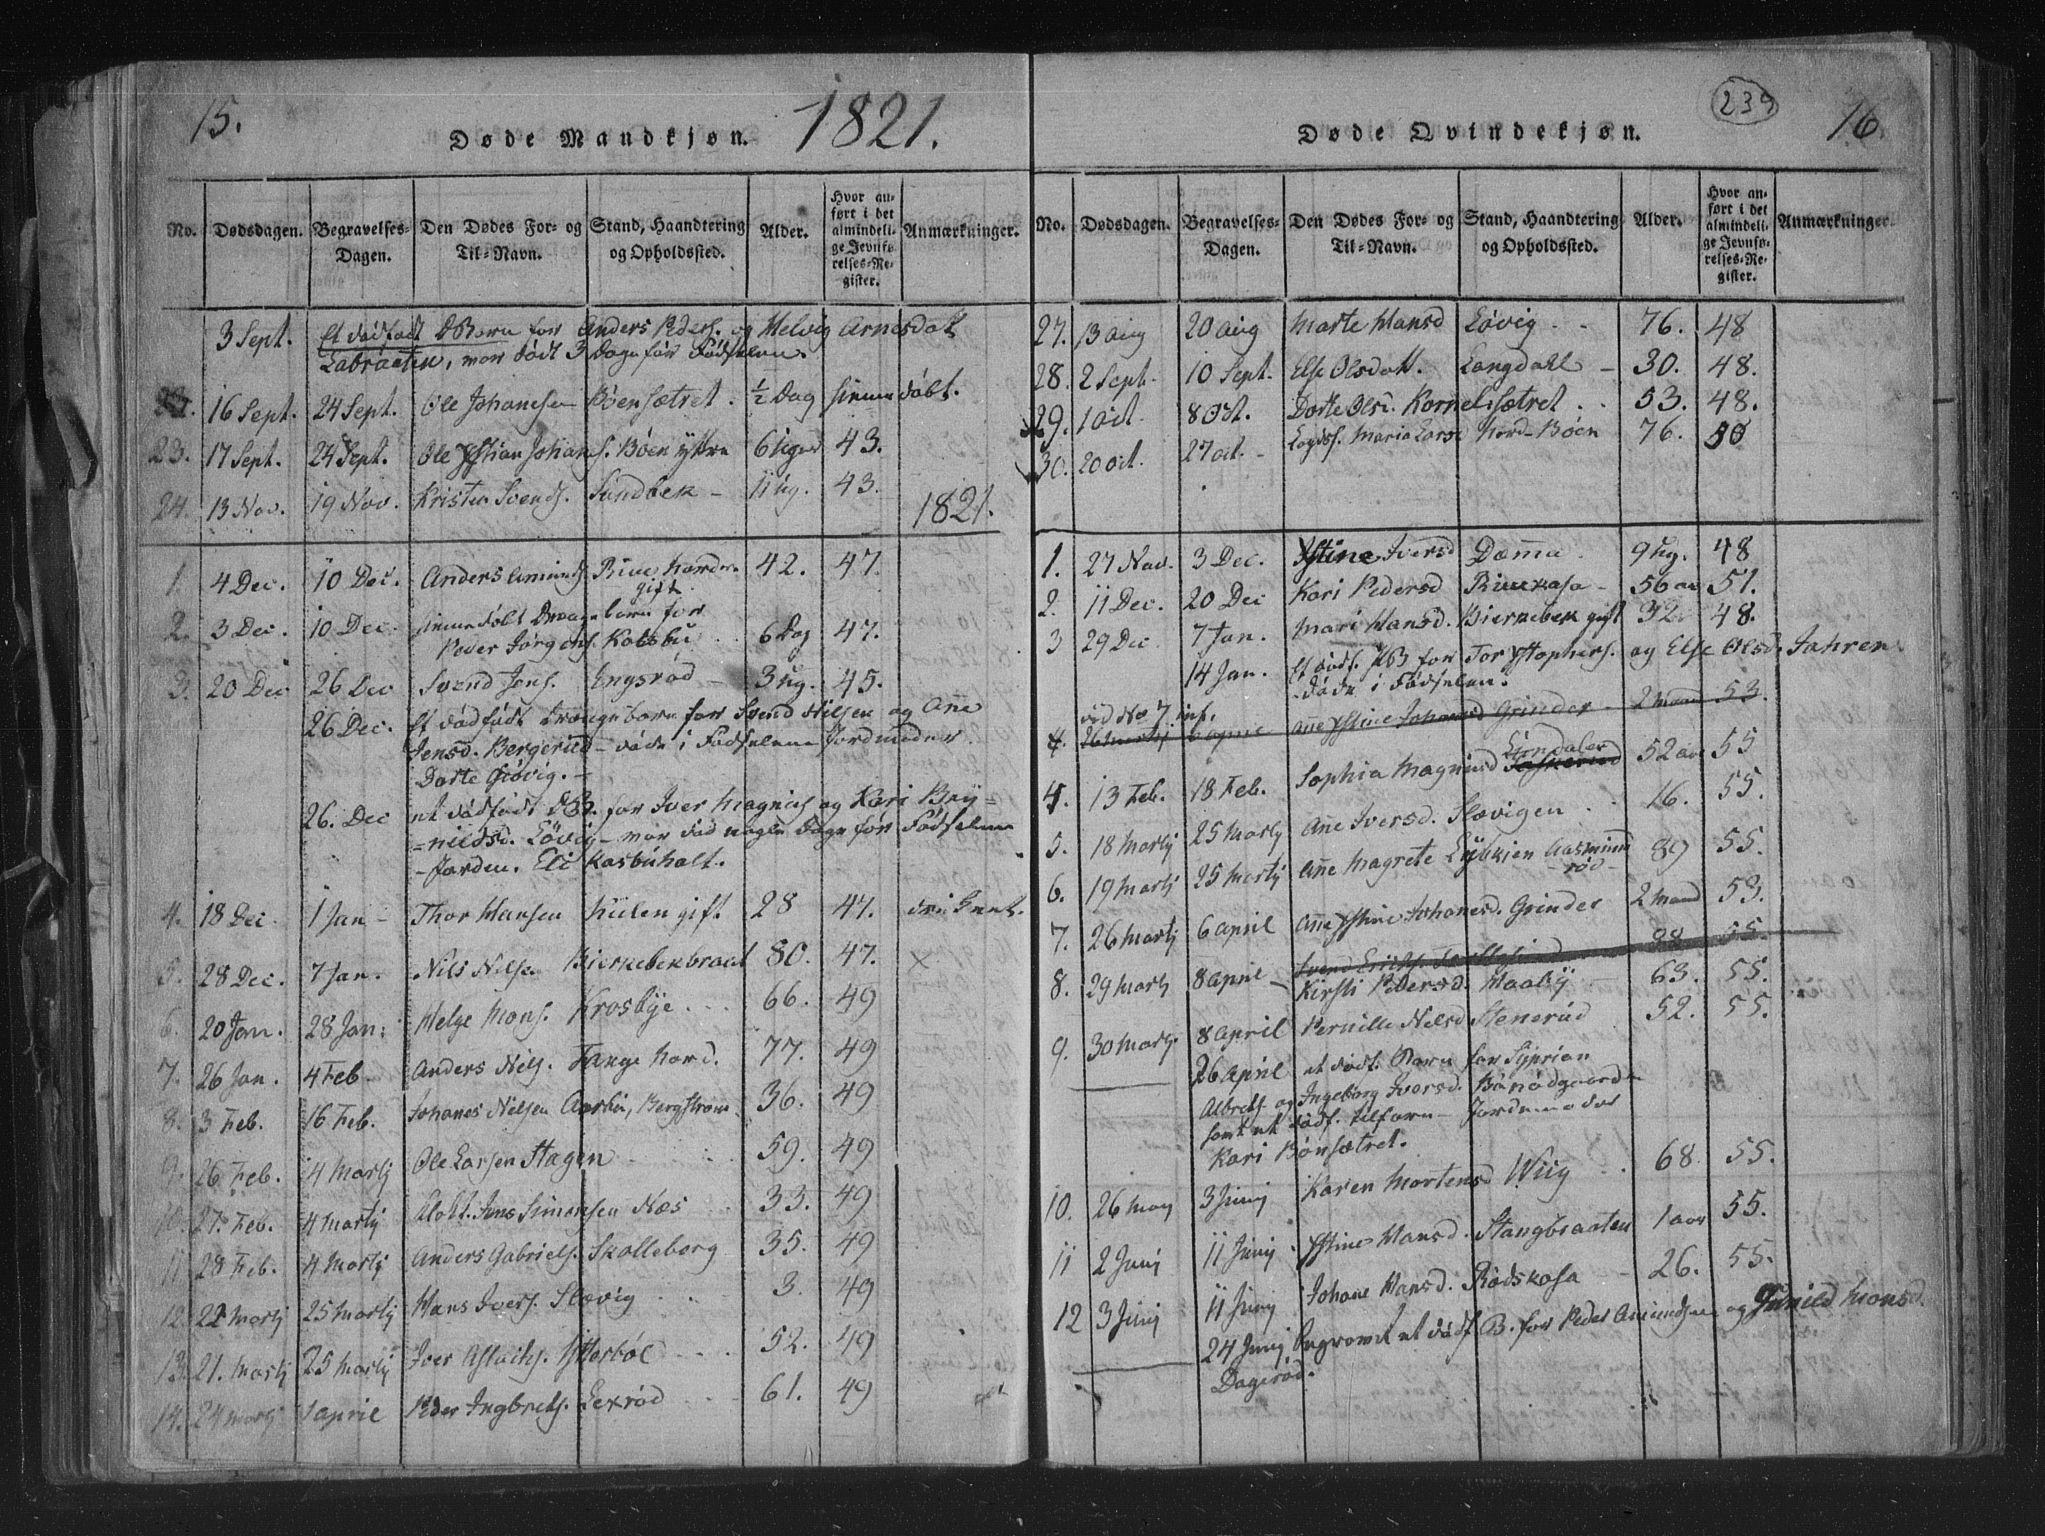 15.
Døde Mandkjøn.
1821.
No. Dødsdagen. Begravelses-Dagen. Den Dødes For- og Til-Navn. Stand, Haandtering og Opholdssted. Alder. Hvor anført i det almindelige Jevnførelses-Register. Anmærkninger.
3 Sept. et dødfødt DBarn for Anders Peders. og Helvig Arnesdatt
Labraaten, var dødt 3 Dage før Fødselen.
22. 16 Sept. 24 Sept. Ole Johansen Böensætret . ½ Dag hiemedöbt.
23. 17 Sept. 24 Sept. Ole Johans. Böen ytre 6 Uger 43.
24. 13 Nov. 19 Nov. Kristen Svends. Sundbek – 11 Ug. 43.
1821.
1. 4 Dec. 10 Dec. Anders Amunds. nordre 42. 47.
gift
2. 3 Dec. 10 Dec. hiemedöbt Drengebarn for
Peder Jörgens. Kolsbu . . 6 Dag 47.
3. 20 Dec 26 Dec Svend Jens. Engsröd – 3 ug. 45.
26 Dec. et dödfödt Drengebarn for Svend Nilsen og Añe
Jensd. Bergerud – döde i Fødselen Jordmoder
Dorte Giövig. –
26. Dec et dødfödt DB. for Iver Magnus og Kari Bry=
=nildsd. Lövig – var död nogle Dage för Fødselen
– Jorden. Eli Kasbuholt.
4. 18 Dec. 1 Jan – Thor Hansen gift 28 47.
5. 28 Dec. 7 Jan. Nils Nilsen Bierkebekbraat 80. 47. ×
6. 20 Jan. 28 Jan: Helge Mons. Krosbye . . . 66. 49
7. 26 Jan. 4 Feb – Anders Nils. Tange nord. 77. 49
8. 3 Feb. 16 Feb. Johanes Nilsen Aasbu, Bergstrøm 36. 49
9. 26 Feb. 4 Martj Ole Larsen Hagen 59. 49
10. 27. Feb. 4 Martj Jens Simonsen Næs . . 33. 49
11 28 Feb. 4 Martj Anders Gabriels. Skolleborg . 35. 49
12. 22 Martj 25 Martj Hans Ivers. Slævig . . . 3. 49
13. 21. Martj 25 Martj Iver Aslachs. Ytterböl . . . 52. 49
14. 24 Martj 1 april Peder Ingbrets. Lexröd . . . 61. 49
239
16.
Døde Qvindekjøn.
No. Dødsdagen. Begravelses-Dagen. Den Dødes For- og Til-Navn. Stand, Haandtering og Opholdssted. Alder. Hvor anført i det almindelige Jevnførelses-Register. Anmærkninger.
27. 13 aug 20 aug Marte Hansd Lövig . . 76. 48
28. 2 Sept. 10 Sept. Else Olsdatt. Langdahl – 30. 48.
29. 1 oct. 8 Oct. Dorte Olsd. Kornelisætret . . 53. 48.
30. 20 oct. 27 oct. – Logds. Maria Larsd Nord-Böen 76. 50
1. 27 Nov. 3 Dec. Iversd Dæm̄a . 9 Ug. 48
2. 11 Dec. 20 Dec Kari Pedersd – 56 aar 51.
3 29 Dec 7 Jan. Mari Hansd. Bierkebek gift 32. 48.
14 Jan. et dødf. for Tor Xstophers. og Else Olsd. Jahren
döde i Födselen.
vid No 7 inf.
4. 26 Martj 6 april Añe Xstine Johansd Grinder – 2 Maan 53.
Lundalen
4. 13 Feb. 18 Feb. Sophia Magnusd 52 aar 55
5. 18 Martj 25 Martj Añe Iversd. Slævigen . . 16. 55.
6. 19 Martj 25 Martj Añe Magrete Aasmund 89 55.
– röd –
7. 26 Martj 6 april Añe Xstine Johanesd. Grinder 2 Maand 53.
Svend Erichs. 88 55.
8. 29 Martj 8 april – Kirsti Pedersd. Haabÿ . . 63. 55.
9. 30 Martj. 8 april Pernille Nelsd Stenerud 52. 55.
26 april et dødf. Barn for Syprian
Albrets. og Ingeborg Iversd.
samt et dødf. – Jordemoder
Kari Bönsætret.
10. 26 May 3 Junij Karen Mortensd Wiig . . 68. 55.
11 2 Junij 11 Junij Xstine Hansd. Stangbraaten 1 aar 55.
12 3 Junij 11 Junij Johane Hansd. Rödskasa – 26. 55.
24 Junij et dødf. B. for Peder Amundsen og Gunild Monsd.
Dageröd.